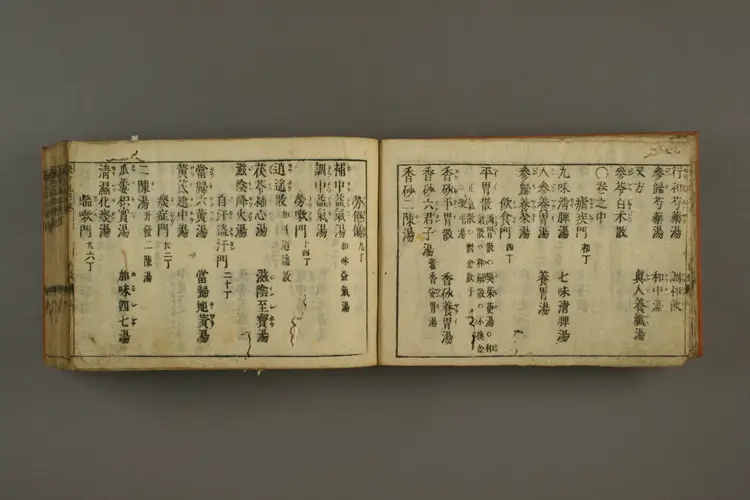 行和芍薬湯 調和飲
参歸芍薬湯 和中湯
又方 真人養臓湯
参苓白朮散
〇卷之中
瘧疾門 初丁
九味清脾湯 七味清脾湯
人参養胃湯 養胃湯
参歸養榮湯
飲食門 四丁
平胃散
香砂平胃散 香砂養胃湯
香砂六君子湯
香砂二陳湯
勞倦傷 九丁
補中益氣湯 加味益氣湯
調中益氣湯
勞嗽門 十四丁
逍遙散 加味逍遙散
茯苓補心湯 滋陰至寶湯
滋陰降火湯
自汗盗汗門 二十丁
當歸六黄湯 當歸地黄湯
黄芪建中湯
痰症門
二陳湯
瓜蔞枳實湯 加味四七湯
清濕化痰湯
咳嗽門